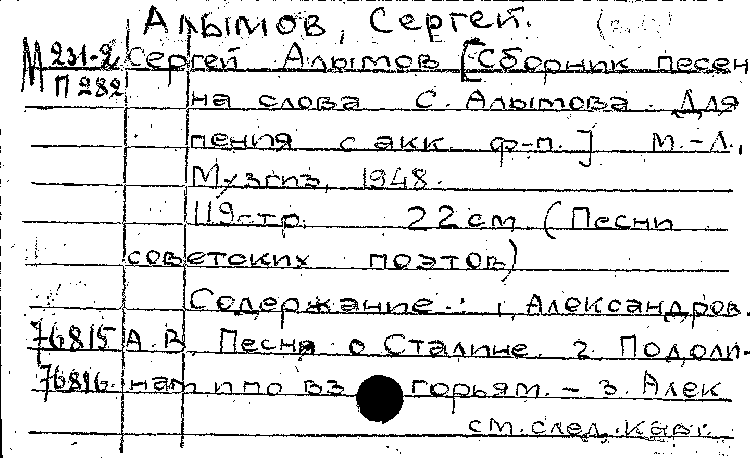 Алымов, Сергей.
М 231-2 Сергей Алымов [Сборник песен
П 282 на слова С. Алымова. Для
пения с акк. ф-п.] М.-Л.,
Музгиз, 1948.
119 стр. 22 см (Песни
советских поэтов)
Содержание: 1. Александров.
76815 А.В. Песня о Сталине. 2. По доли-
76816 нам и по вз горьям. – 3. Алек
см. след. карт.